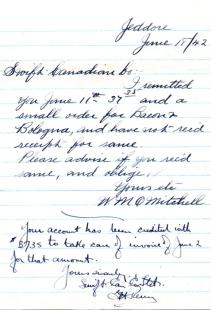 Jeddore
June 15/42
Swift Canadian Co:
I remitted
you June 11th 37 35 and a
small order for Bacon &
Bologna, and have not recid
receipt for same.
Please advise if you recid
same, and oblige,
Yours etc
W M O Mitchell
Your account has been credited with
$37.35 to take care of invoice of June 2
for that amount.
Yours sincerely
Swift Can